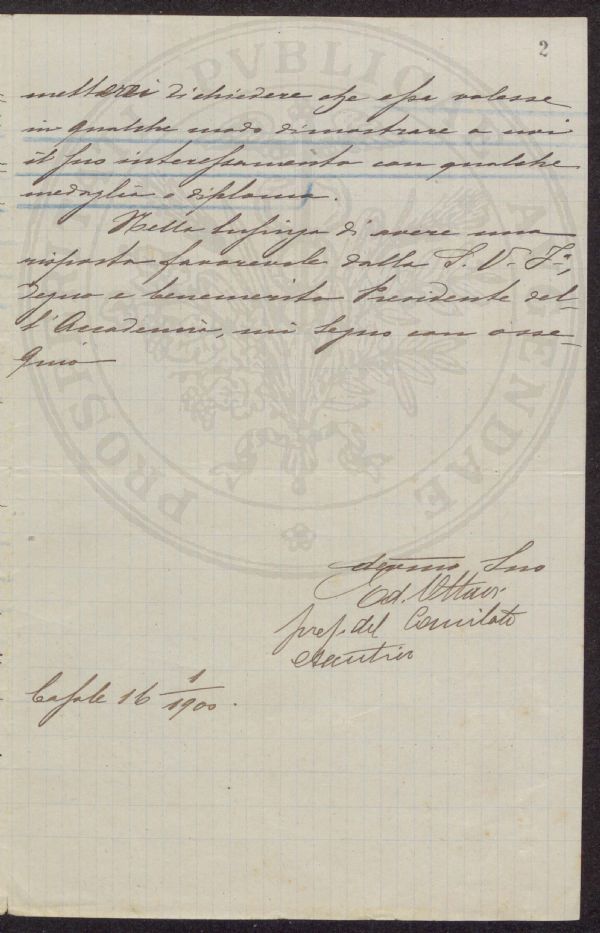 2
metterci di chiedere che essa volesse
in qualche modo dimostrare a noi
il suo interessamento con qualche
medaglia o diploma.
Nella lusinga di avere una
risposta favorevole dalla S. V. Ill.,
degno e benemerito Presidente del-
l'Accademia, mi segno con osse-
quio
devmo Suo
Ed. Ottavi
pres. del Comitato
esecutivo
Casale 16 1/1900.
PVBLICAE
AVGENDAE
PROSPERITATI